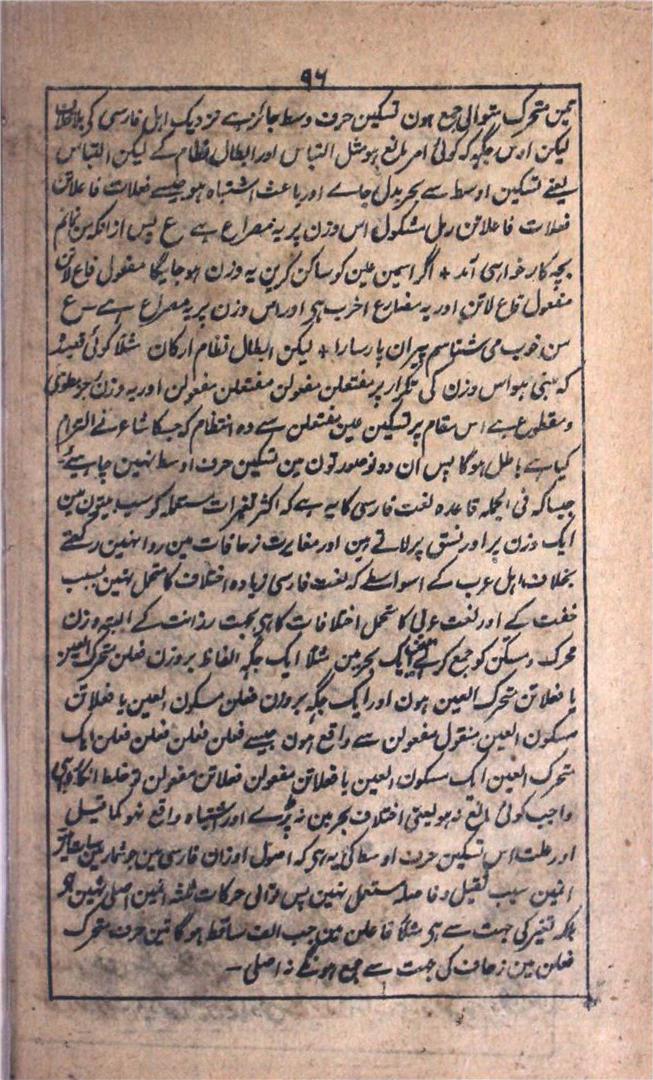 ۹۶
تین متحرک متوالی جمع ہون تسکین حرف وسط جائز ہے نزدیک اہل فارسی کے
لیکن اوس جگہہ کہ کوئی امر مانع ہو مثل التباس اور ابطال نظام کے لیکن التباس
یعنے تسکین اوسط سے بحر بدل جاے اور باعث اشتباہ ہو جیسے فعلات فاعلاتن
فعلات فاعلاتن رمل مشکول اس وزن پر یہ مصراع ہے ع پس از انکہ من نمانم
بچہ کار خواہی آمد + اگر اسمین عین کو ساکن کرین یہ وزن ہو جایگا مفعول فاع لاتن
مفعول فاع لاتن اور یہ مضارع اخرب ہی اور اس وزن پر یہ مصراع ہے ۔ ع
من خوب می شناسم پیران پارسا را + لیکن ابطال نظام ارکان مثلاً کوئی قصیدہ
کہ مبنی ہو اس وزن کی تکرار پر مفتعلن مفعولن مفتعلن مفعولن اور یہ وزن رجز مطوی
و مقطوع ہے اس مقام پر تسکین عین مفتعلن سے وہ انتظام کہ جسکا شاعر نے التزام
کیا ہے باطل ہوگا پس ان دونو صورتون مین تسکین حرف اوسط نہین چاہیے
جیسا کہ فی الجملہ قاعدہ لغت فارسی کا یہ ہے کہ اکثر تغیرات مستعملہ کو سب بیتون مین
ایک وزن پر اور نسق پر لاتے ہین اور مغایرت زحافات مین روا نہین رکھتے
بخلاف اہل عرب کے اسواسطے کہ لغت فارسی زیادہ اختلاف کا متحمل نہین بسبب
خفت کے اور لغت عربی کا متحمل اختلافات کا ہی بجہت رزانت کے البتہ وزن
محرک و مسکن کو جمع کرتے ہین ایک بحر مین مثلاً ایک جگہہ الفاظ بر وزن فعلن متحرک العین
یا فعلاتن متحرک العین ہون اور ایک جگہ بر وزن فعلن مسکون العین یا فعلاتن
مسکون العین منقول مفعولن سے واقع ہون جیسے فعلن فعلن فعلن فعلن ایک
متحرک العین ایک مسکون العین یا فعلاتن مفعولن فعلاتن مفعولن تو خلط انکا وہی
واجب کوئی مانع نہو لیعنی اختلاف بحر مین نہ پڑے اور اشتباہ واقع نہو کما قیل
اور علت اس تسکین حرف اوسط کی یہ ہی کہ اصول اوزان فارسی مین جو شمار مین
انمین سبب ثقیل و فاصلہ مستعمل نہین پس توالی حرکات ثلثہ انمین اصلی نہین ہی
بلکہ تغیر کی جہت سے ہی مثلاً فاعلن مین جب الف ساقط ہوگا تین حرف متحرک
فعلن مین زحاف کی جہت سے جمع ہونگے نہ اصلی ۔